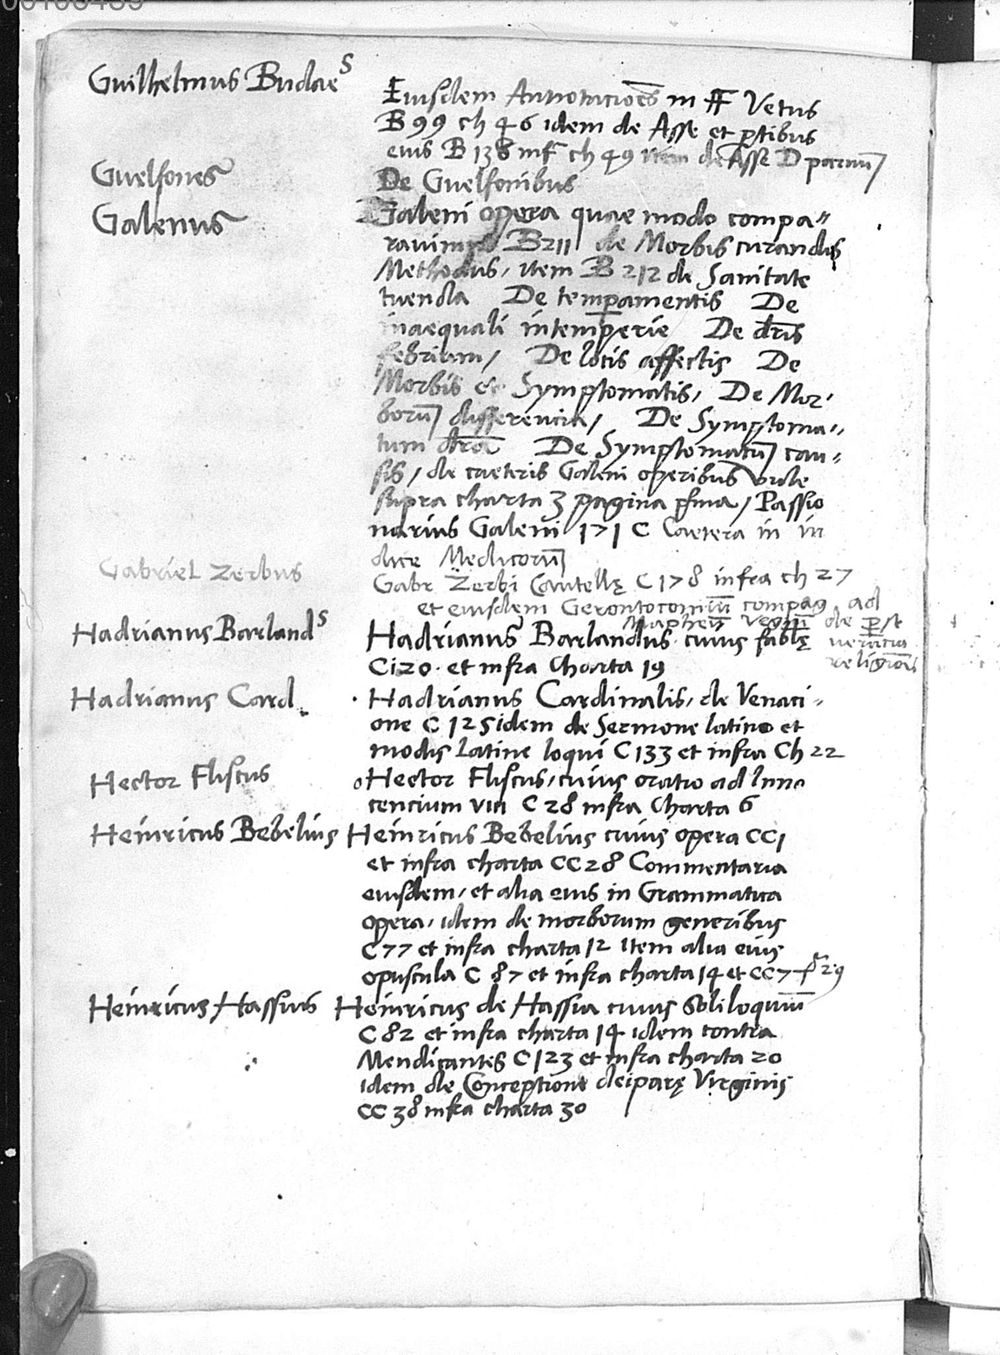 Guilhelmus Budaeˢ
Eiusdem Annotacioēs in FF Vetus
B 99 ch 46 idem de Asse et ptibus
eius B 138 inf ch 49 item de Asse D parauū
Guelfones
De Guelfonibus
Galenus
Galeni opera quae modo compa„
ravimus B 211 de Morbis curandis
Methodus, item B 212 de Sanitate
tuenda De temperamentis De
inaequali intemperie De dr̄iis
febrium, De locis affectis De
Morbis et Symptomatis, De Mor,
borū differencia, De Symptoma„
tum dr̄oē De Symptomatū cau„
sis, de caeteris Galeni operibus vide
supra charta 3 pagina p̄ma, Passio
narius Galeni 171 C Caetera in in
dice Medicorū
Gabriel Zerbus
Gabr Zerbi Cautellę C 178 infra ch 27
et eiusdem Gerontocomiū compag ad
Mapheū Vegiū de p̄st
Hadrianus Barlandˢ
Hadrianus Barlandus cuius fablę
religiōis
C 120 · et infra Charta 19
Hadrianus Card.
Hadrianus Cardinalis, de Venaci„
one C 125 idem de Sermone latino et
modis Latine loqui C 133 et infra Ch 22
Hector Fliscus
Hector Fliscus, cuius oratio ad Inno
cencium VIII C 28 infra Charta 6
Heinricus Bebelius
Heinricus Bebelius cuius opera CC 1
et infra charta CC 28 Commentaria
eiusdem, et alia eius in Grammatica
opera, idem de morborum generibus
C 77 et infra charta 12 item alia eius
opuscula C 87 et infra charta 14 et CC 7 f 29
Heinricus Hassius
Heinricus de Hassia cuius Soliloquiū
C 82 et infra charta 14 idem contra
Mendicantes C 123 et infra charta 20
idem de Conceptione deiparę Virginis
CC 38 infra charta 30